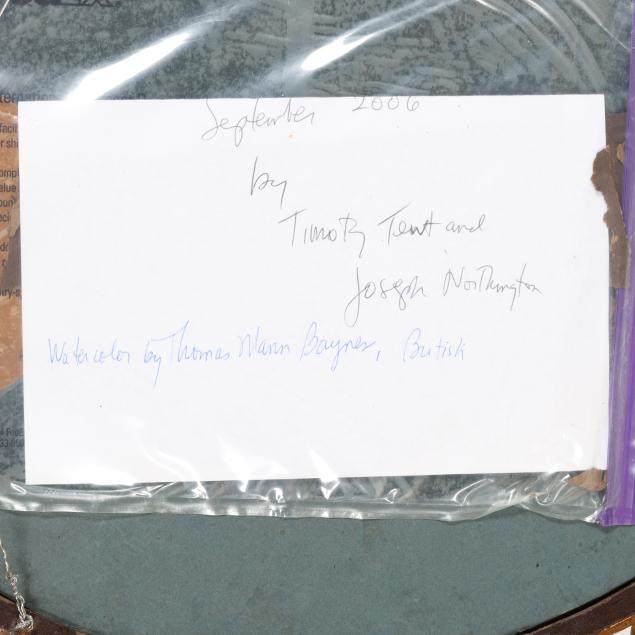 September 2006
by
Timothy Tent and
Joseph Northington
Watercolor by Thomas Mann Baynes, British